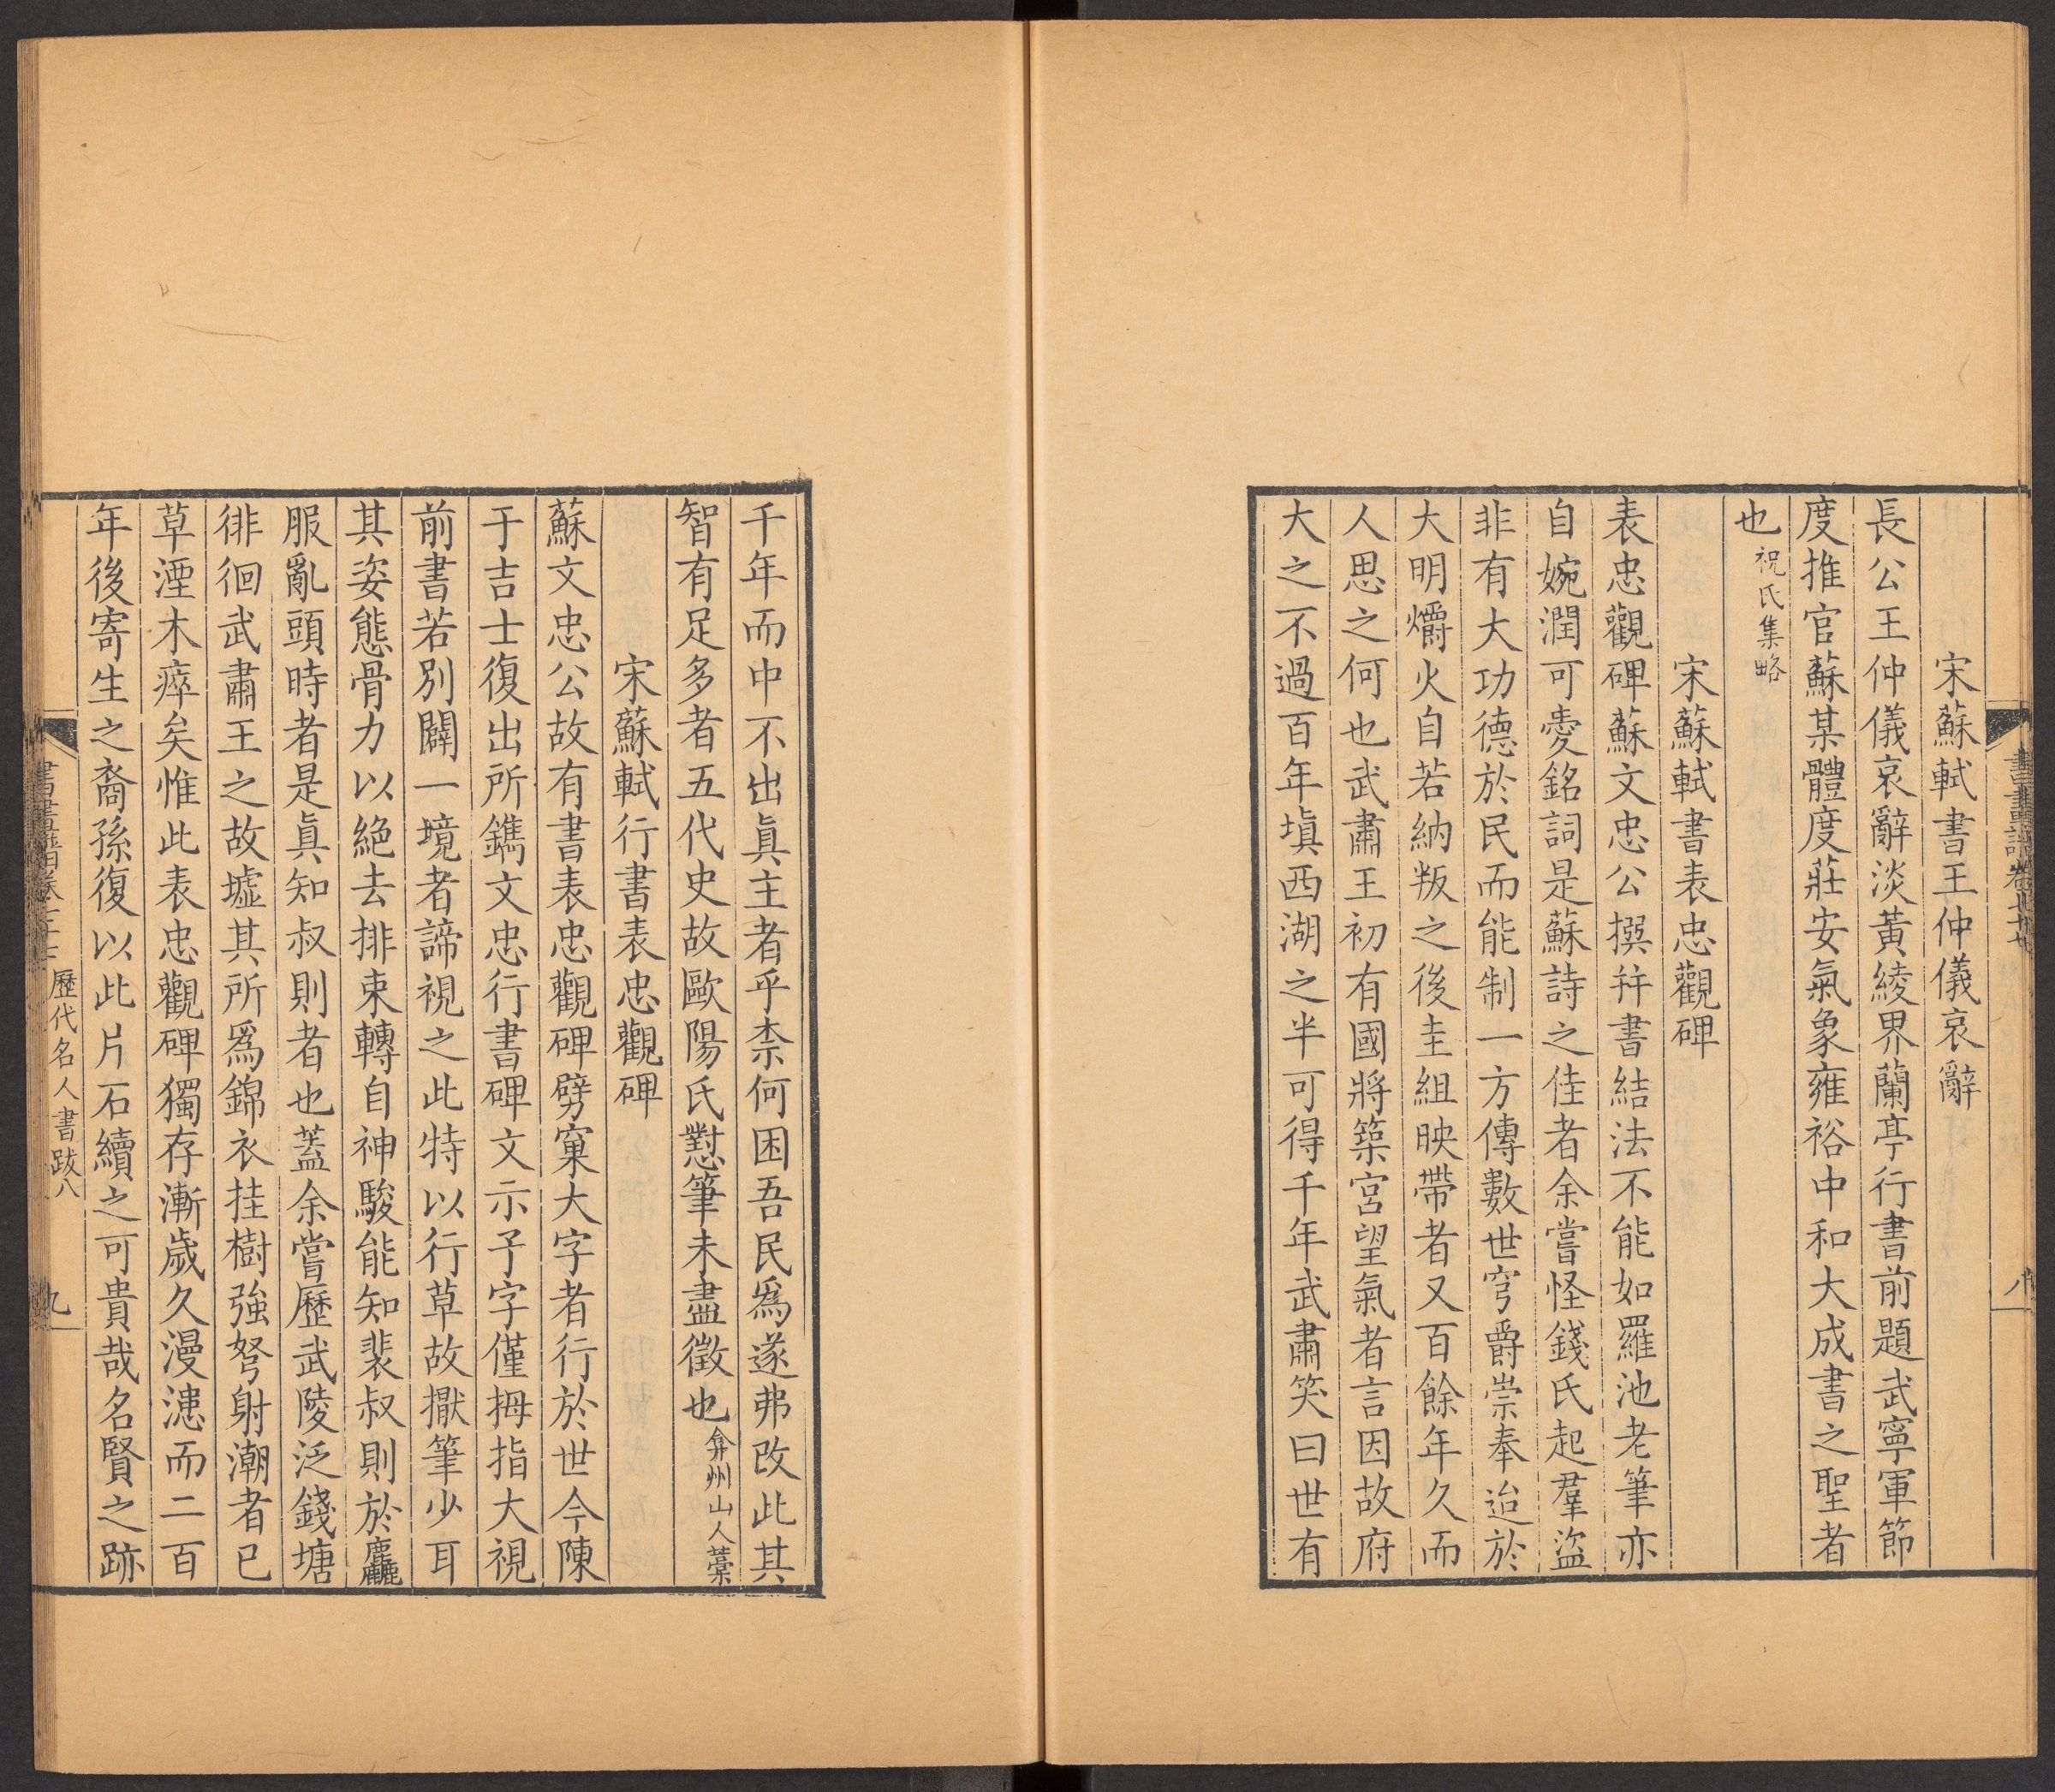 書畫譜卷七十七
八
宋蘇軾書王仲儀哀辭
長公王仲儀哀辭淡黃綾界蘭亭行書前題武寧軍節
度推官蘇某體度莊安氣象雍裕中和大成書之聖者
也祝氏集略
宋蘇軾書表忠觀碑
表忠觀碑蘇文忠公撰幷書結法不能如羅池老筆亦
自婉潤可愛銘詞是蘇詩之佳者余嘗怪錢氏起羣盜
非有大功德於民而能制一方傳數世穹爵崇奉迨於
大明爝火自若納叛之後圭組映帶者又百餘年久而
人思之何也武肅王初有國將築宮望氣者言因故府
大之不過百年塡西湖之半可得千年武肅笑曰世有
千年而中不出眞主者乎柰何困吾民爲遂弗改此其
智有足多者五代史故歐陽氏懟筆未盡徵也弇州山人藁
宋蘇軾行書表忠觀碑
蘇文忠公故有書表忠觀碑劈窠大字者行於世今陳
于吉士復出所鐫文忠行書碑文示予字僅拇指大視
前書若別闢一境者諦視之此特以行草故撳筆少耳
其姿態骨力以絕去排束轉自神駿能知裴叔則於麤
服亂頭時者是眞知叔則者也蓋余嘗歷武陵泛錢塘
徘徊武肅王之故墟其所爲錦衣挂樹強弩射潮者已
草湮木瘁矣惟此表忠觀碑獨存漸歲久漫漶而二百
年後寄生之裔孫復以此片石續之可貴哉名賢之跡
書畫譜卷七十七 歷代名人書跋八
九